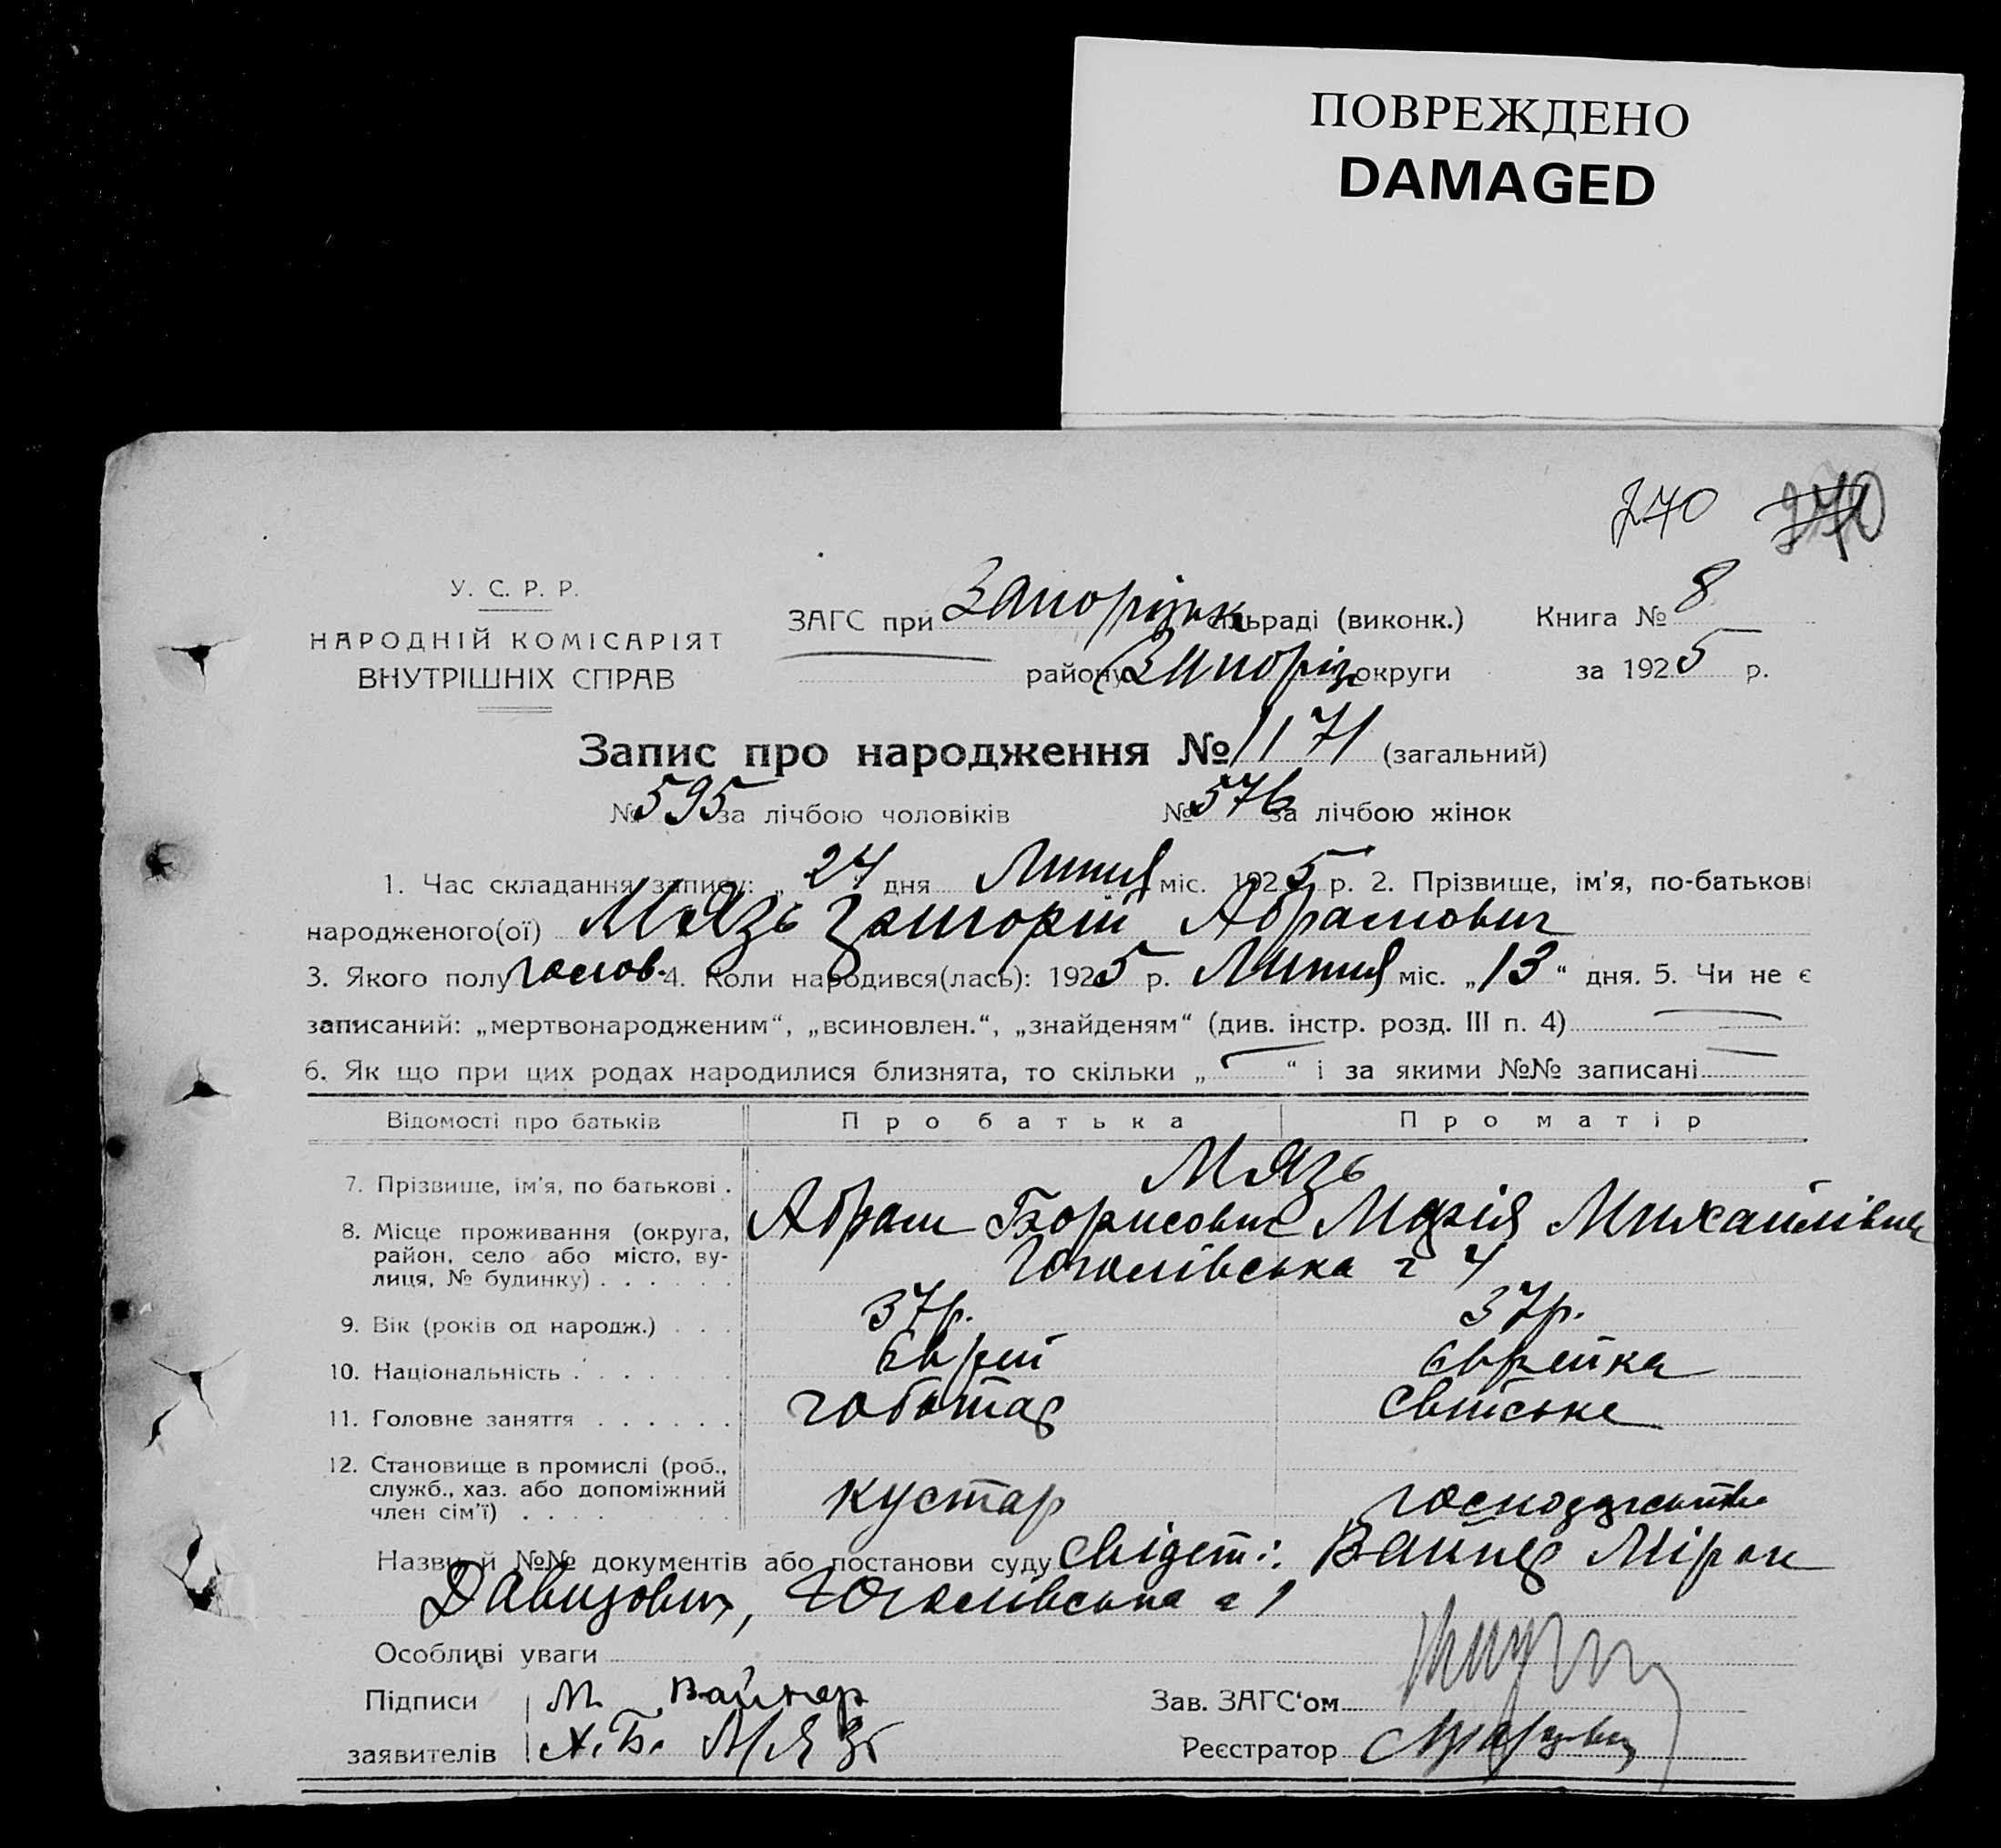 ПОВРЕЖДЕНО
DAMAGED
270 270
У. С. Р. Р.
НАРОДНІЙ КОМІСАРІЯТ
ВНУТРІШНІХ СПРАВ
ЗАГС при Запорізьк сільраді (виконк.) Книга № 8
району Запоріз округи за 1925 р.
Запис про народження № 1171 (загальний)
№ 595 за лічбою чоловіків № 576 за лічбою жінок
1. Час складання запису: „24" дня Липня міс. 1925 р. 2. Прізвище, ім'я, по-батькові
народженого(ої) Мязь Григорій Абрамович
3. Якого полу чолов. 4. Коли народився(лась): 1925 р. Липня міс. „13" дня. 5. Чи не є
записаний: „мертвонародженим", „всиновлен.", „знайденям" (див. інстр. розд. III п. 4)
6. Як що при цих родах народилися близнята, то скільки „ — " і за якими №№ записані —
Відомості про батьків Про батька Про матір
7. Прізвище, ім'я, по батькові . Мязь
Абрам Борисович Марія Михайлівна
8. Місце проживання (округа,
район, село або місто, ву-
лиця, № будинку) . . . . . . Гоголівська 4
9. Вік (років од народж.) . . . 37р. 37р.
10. Національність . . . . . . . Єврей Єврейка
11. Головне заняття . . . . . . чоботар
12. Становище в промислі (роб.,
служб., хаз. або допоміжний
член сім'ї) . . . . . . . . . кустар
Назви й №№ документів або постанови суду Свідет.: Вайнер Мірон
Давидович, Гоголівська 1
Особливі уваги
Підписи М. Вайнер Зав. ЗАГС'ом
заявителів А. Б. Мязь Реєстратор